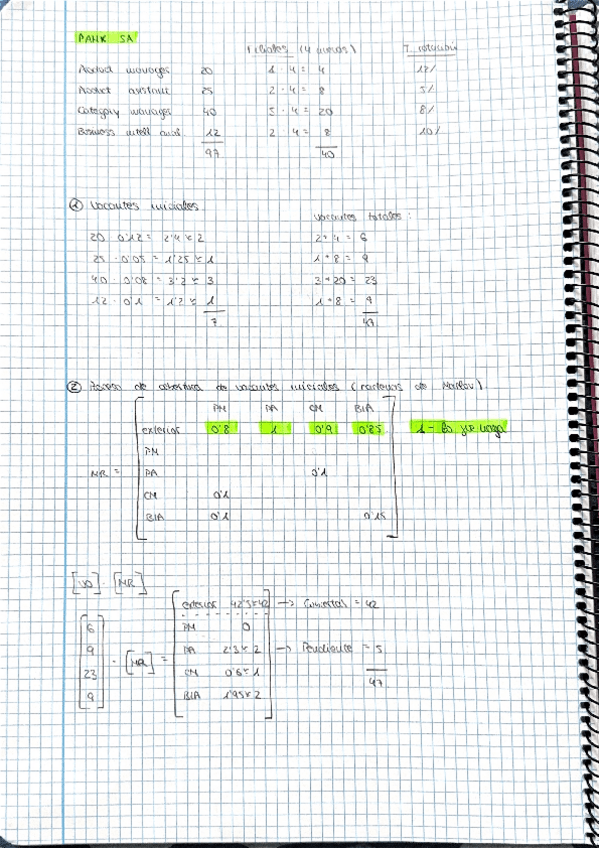 PANK SA
Filiales (4 nuevas) T. rotación
Product managers 20 1 · 4 = 4 12%
Product assistant 25 2 · 4 = 8 5%
Category managers 40 5 · 4 = 20 8%
Business intell anal. 12 2 · 4 = 8 10%
97 40
① Vacantes iniciales. vacantes totales:
20 · 0'12 = 2'4 ≈ 2 2 + 4 = 6
25 · 0'05 = 1'25 ≈ 1 1 + 8 = 9
40 · 0'08 = 3'2 ≈ 3 3 + 20 = 23
12 · 0'1 = 1'2 ≈ 1 1 + 8 = 9
7 47
② Proceso de cobertura de vacantes iniciales (cadenas de Markov).
PM PA CM BIA
exterior 0'8 1 0'9 0'85 1 - lo que venga
PM
MR = PA 0'1
CM 0'1
BIA 0'1 0'15
[VO] · [MR]
exterior 42'5≈42 → Comercial = 42
6 PM 0
9 PA 2'3≈2 → Pendiente = 5
23 · [MR] = CM 0'6≈1 47
9 BIA 1'95≈2